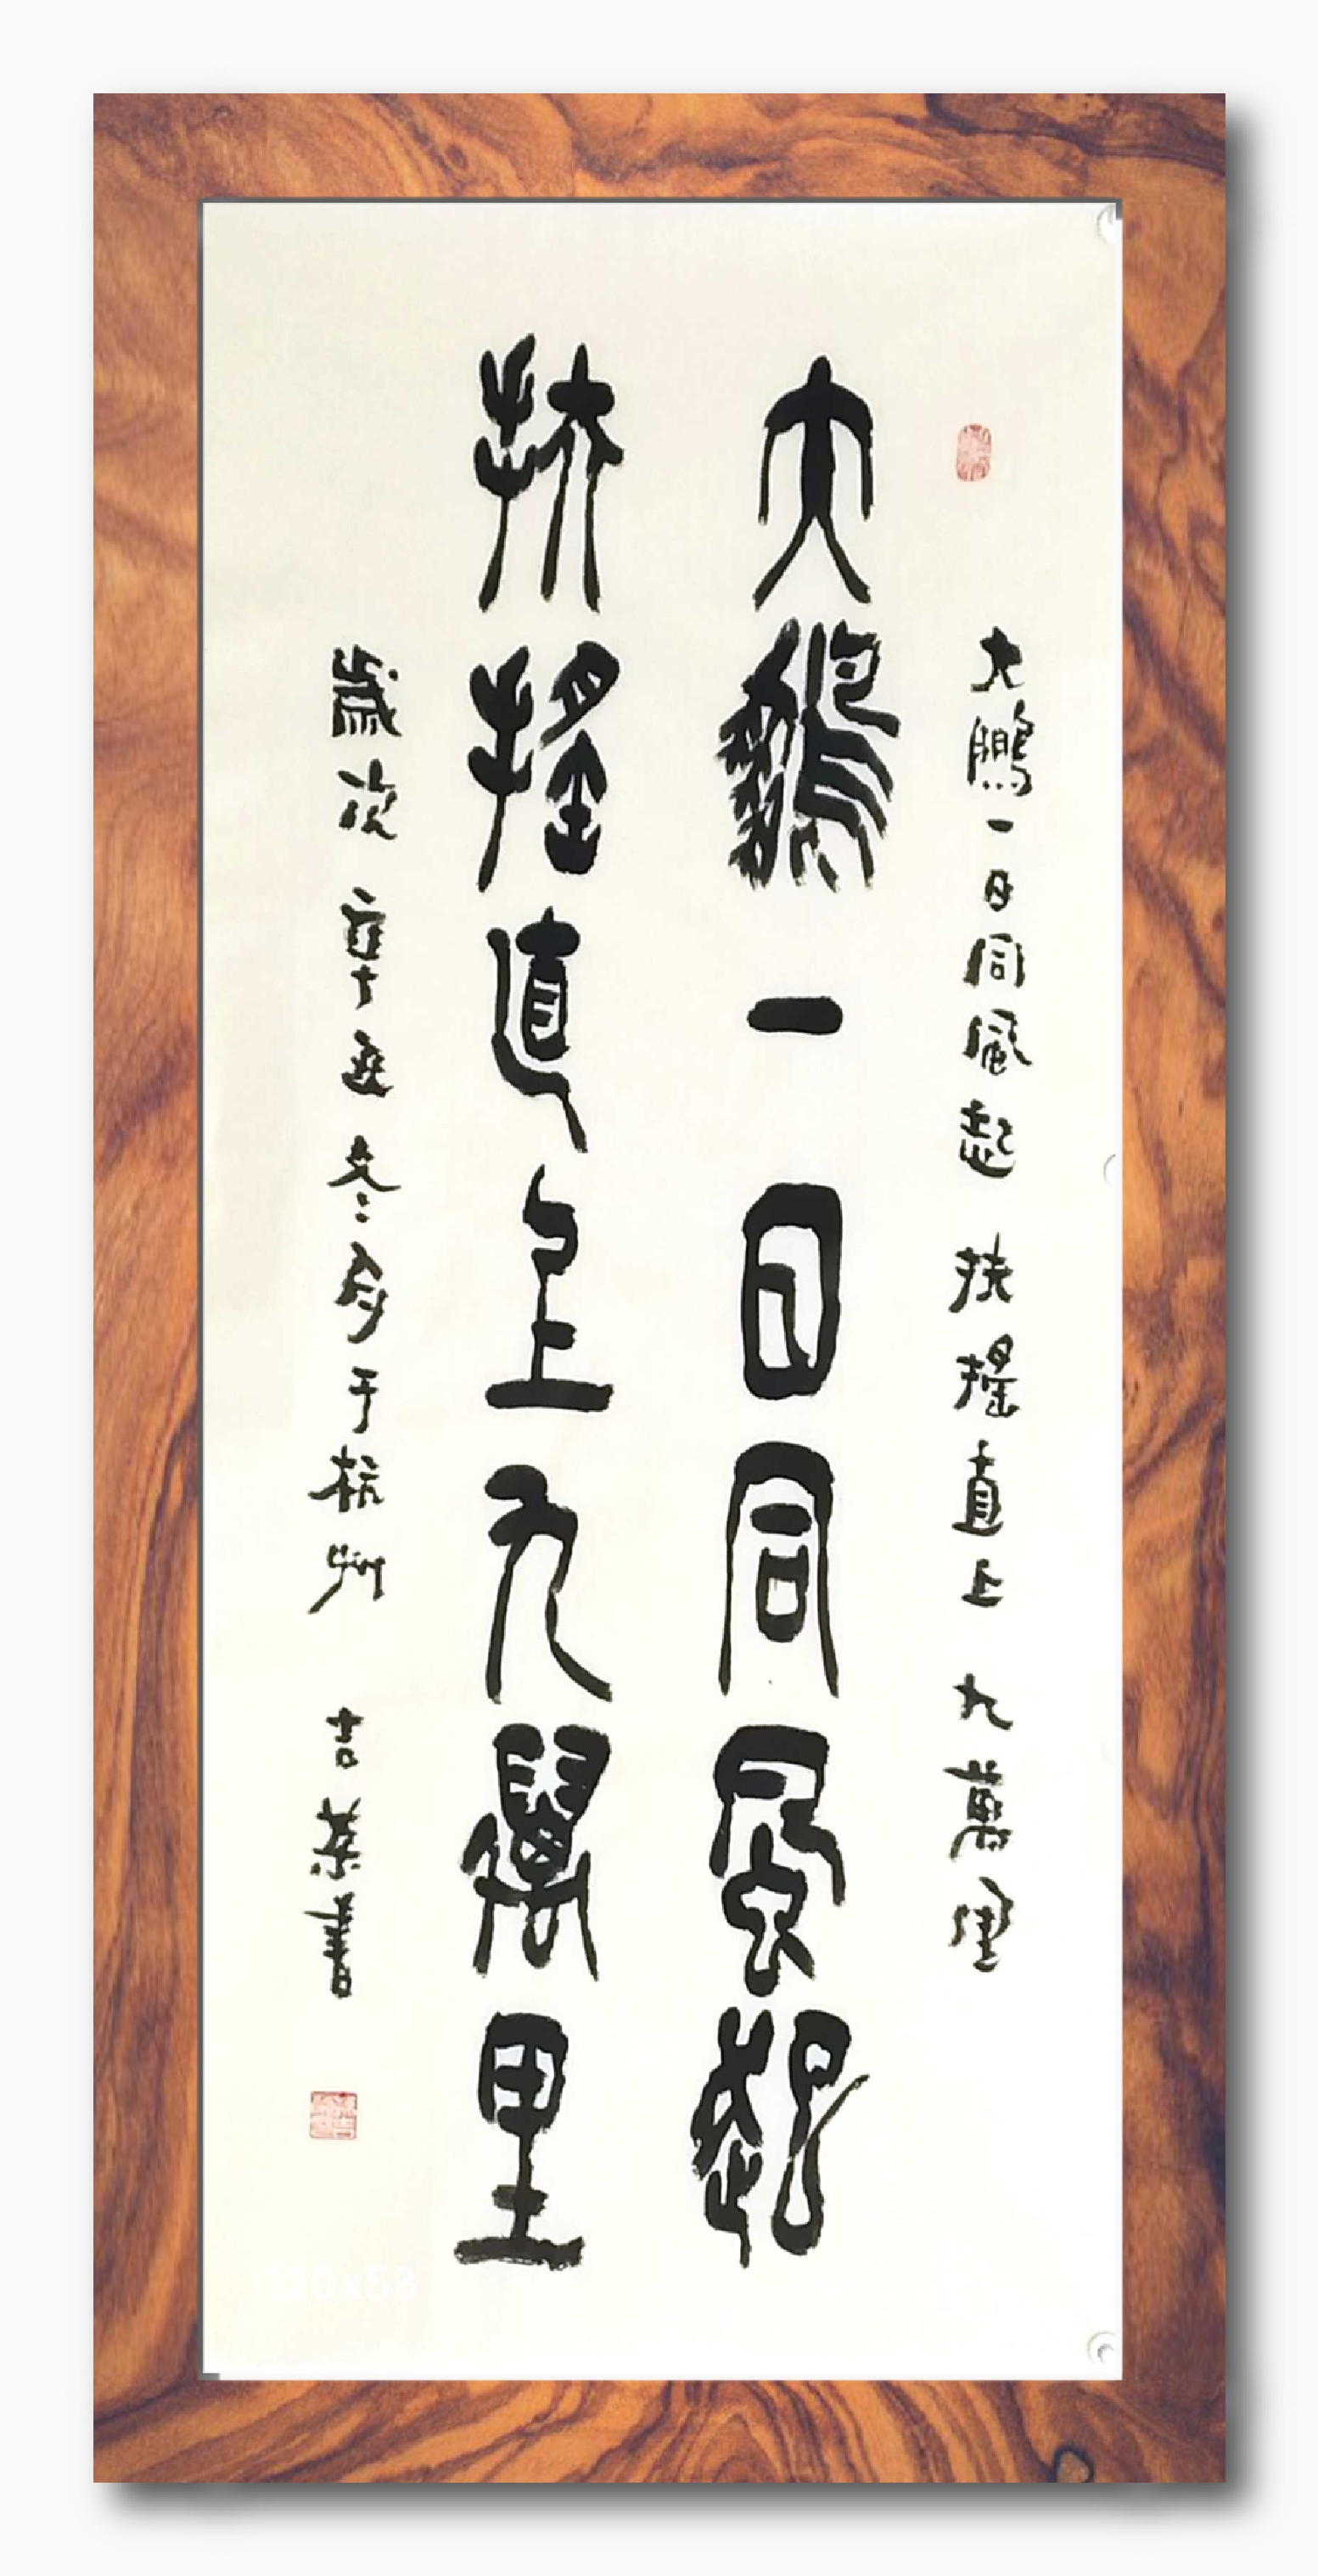 大鵬一日同風起 扶搖直上 九萬里
大鵬一日同風起
扶搖直上九萬里
歲次 辛丑冬月于杭州 吉葉書